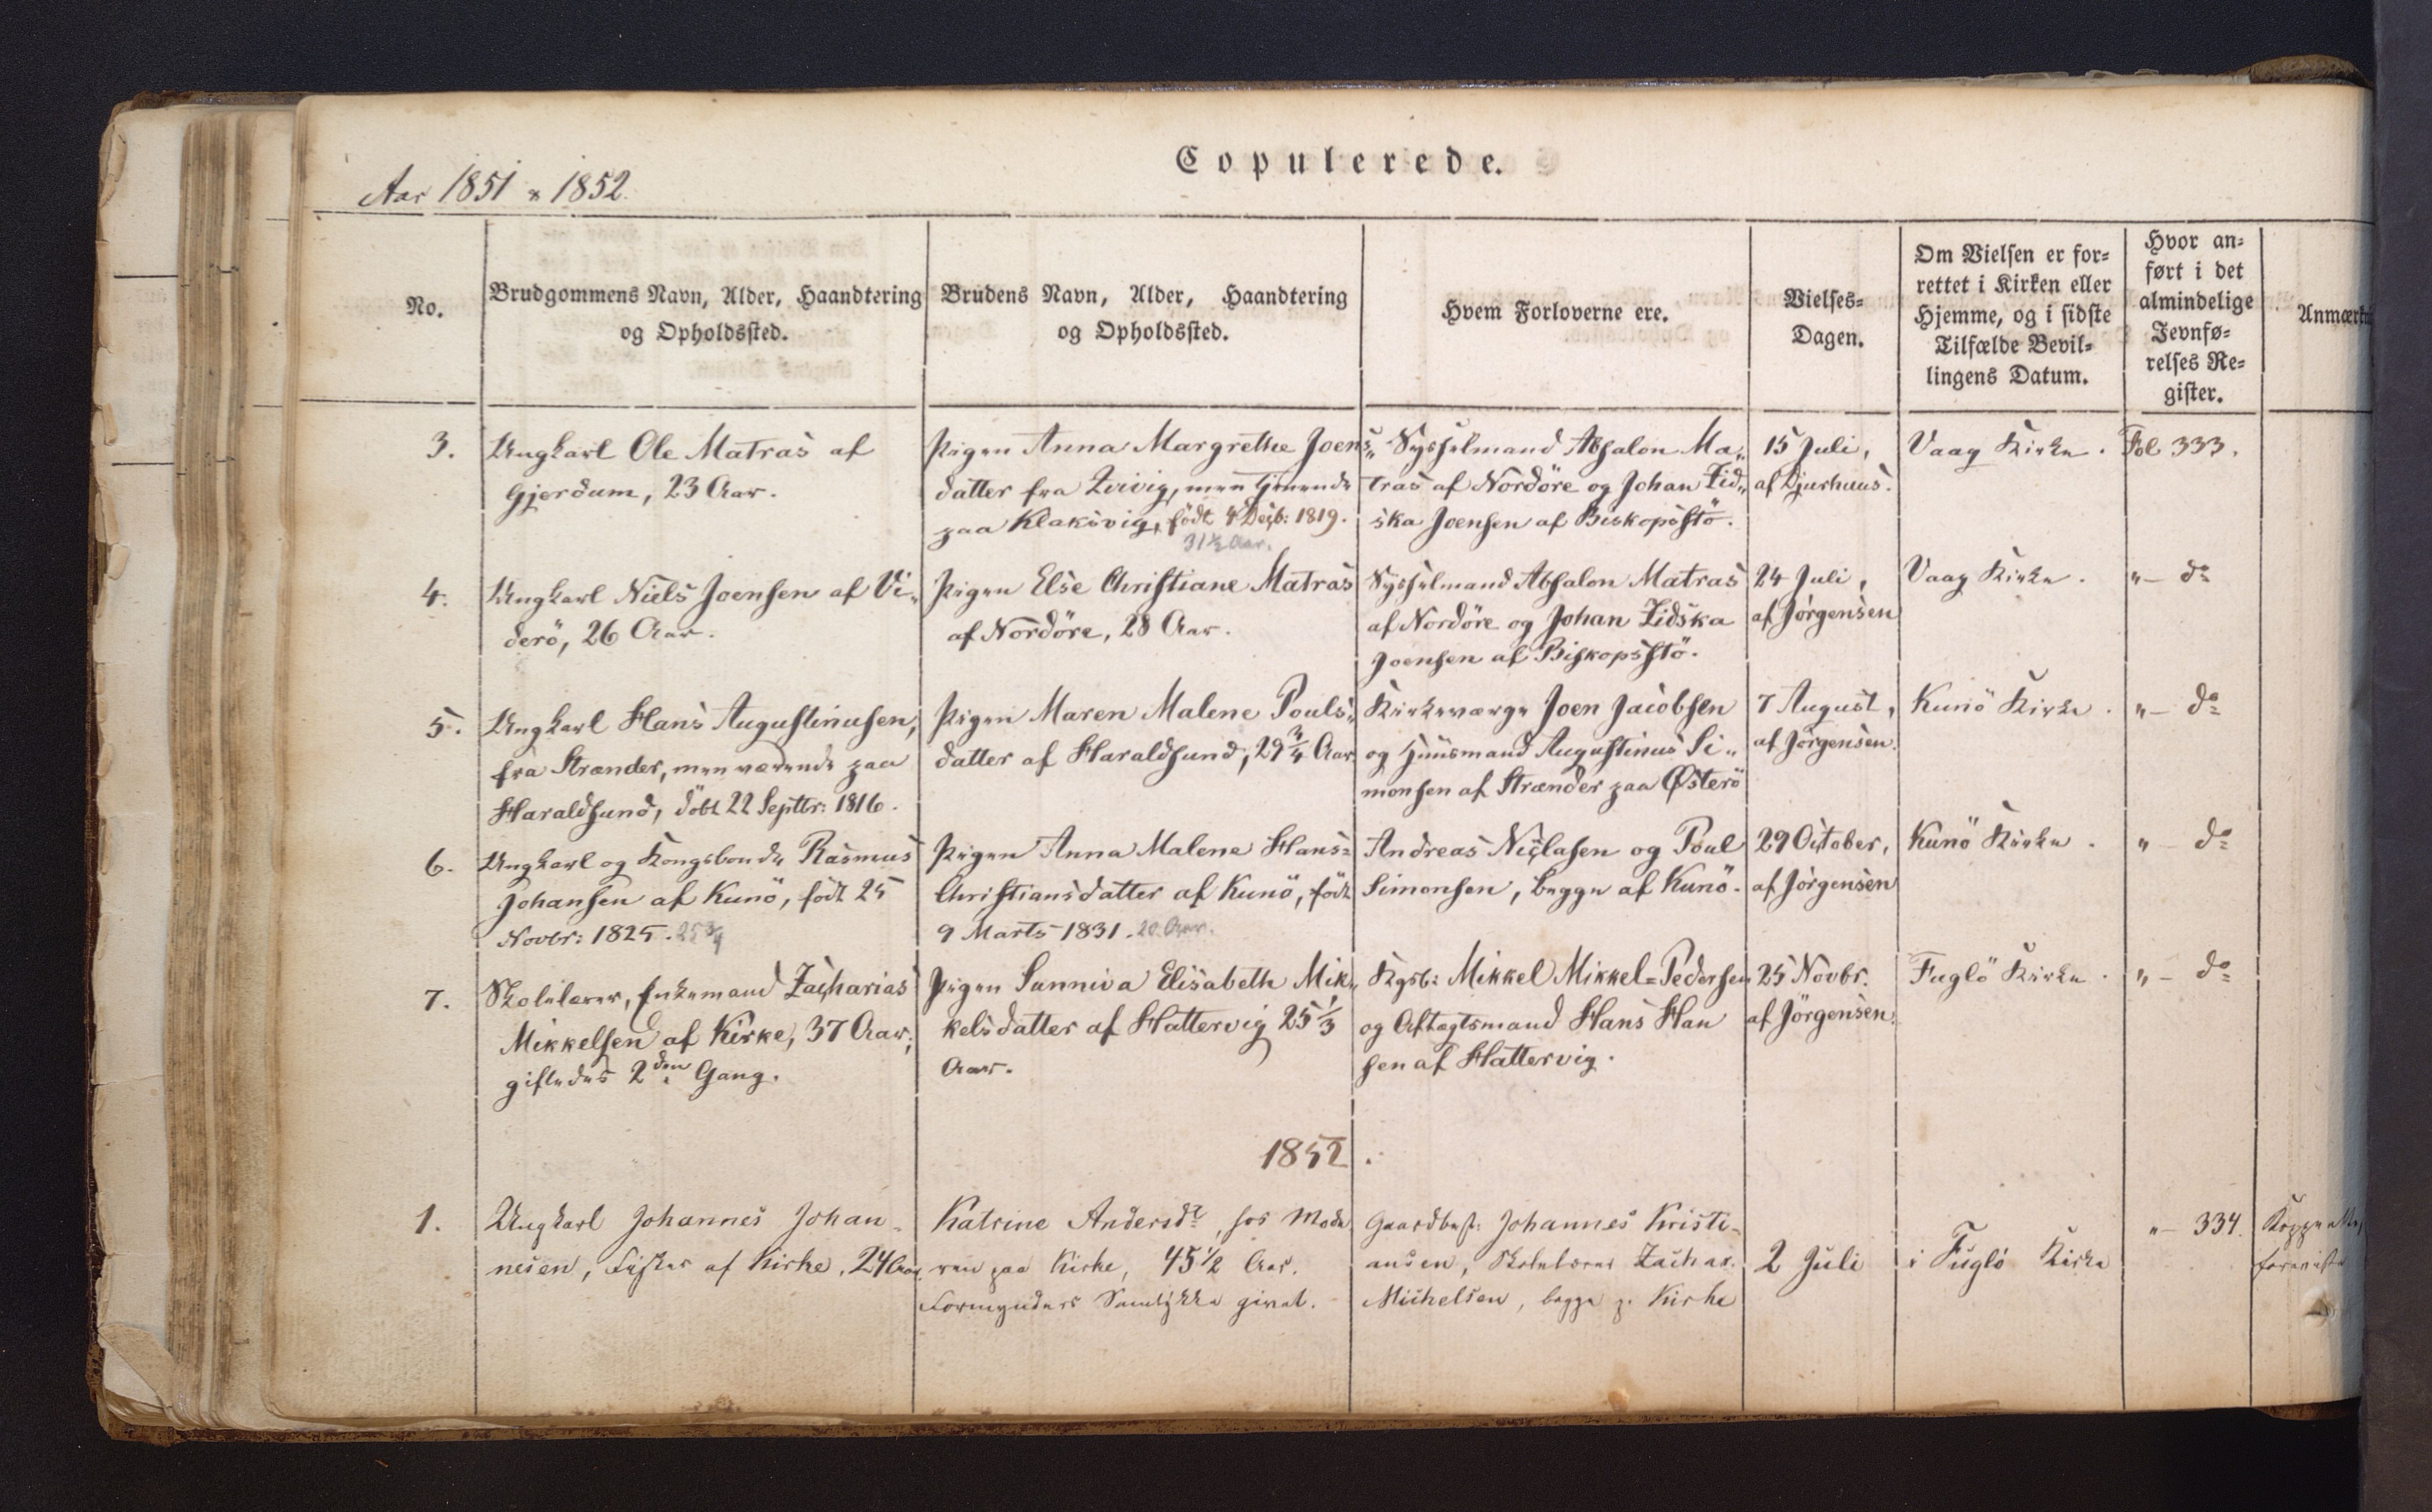 Copulerede.
Aar 1851 & 1852.
No.
Brudgommens Navn, Alder, Haandtering
og Opholdssted.
Brudens Navn, Alder, Haandtering
og Opholdssted.
Hvem Forloverne ere.
Vielses-
Dagen.
Om Vielsen er for-
rettet i Kirken eller
Hjemme, og i sidste
Tilfælde Bevil-
lingens Datum.
Hvor an-
ført i det
almindelige
Jevnfø-
relses Re-
gister.
3.
Ungkarl Ole Matras af
Gjerdum, 23 Aar.
Pigen Anna Margrethe Joens„
datter fra Qvivig, men tjenende
paa Klaksvig, født 4 Decb: 1819.
31½ Aar.
Sysselmand Absalon Ma„
tras af Nordöre og Johan Zid„
ska Joensen af Biskopsstö.
15 Juli,
af Djurhuus.
Vaag Kirke.
Fol 333.
4.
Ungkarl Niels Joensen af Vi„
derö, 26 Aar.
Pigen Else Christiane Matras
af Nordöre, 28 Aar.
Sysselmand Absalon Matras
af Nordöre og Johan Zidska
Joensen af Biskopsstö.
24 Juli,
af Jörgensen
Vaag Kirke.
„— do
5.
Ungkarl Hans Augustinusen,
fra Strænder, men værende paa
Haraldsund, döbt 22 Septbr: 1816.
Pigen Maren Malene Pouls„
datter af Haraldsund, 29¾ Aar
Kirkeværge Joen Jacobsen
og Huusmand Augustinus Si„
monsen af Strænder paa Østerö
7 August,
af Jörgensen.
Kunö Kirke.
„— do
6.
Ungkarl og Kongsbonde Rasmus
Johansen af Kunö, födt 25
Novbr: 1825. 25¾
Pigen Anna Malene Hans=
Christiansdatter af Kunö, födt
9 Marts 1831. 20 Aar.
Andreas Niclasen og Poul
Simonsen, begge af Kunö.
29 October,
af Jörgensen
Kunö Kirke.
„— do
7.
Skolelærer, Enkemand Zacharias
Mikkelsen af Kirke, 37 Aar;
giftedes 2den Gang.
Pigen Sunniva Elisabeth Mik„
kelsdatter af Hattervig 25⅓
Aar.
Kgsb: Mikkel Mikkel=Pedersen
og Aftægtsmand Hans Han
sen af Hattervig.
25 Novbr.
af Jörgensen.
Fuglö Kirke.
„— do
1852.
1.
Ungkarl Johannes Johan-
nesen, Fisker af Kirke, 24 Aar
Katrine Andersdr, hos Mode
ren paa Kirke, 45½ Aar.
Formynders Samtykke givet.
Gaardbest: Johannes Kristi-
ansen, Skolelærer Zachar.
Michelsen, begge p. Kirke
2 Juli
i Fuglö Kirke
„— 334.